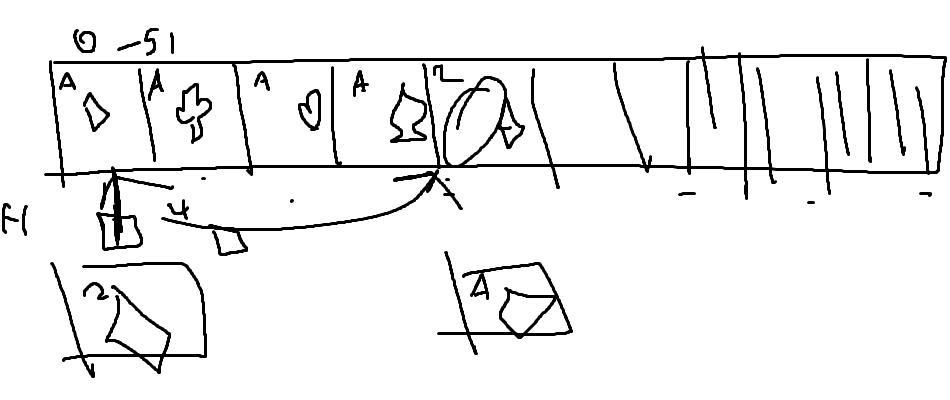 0 - 51
A A A A 2
4
2 A